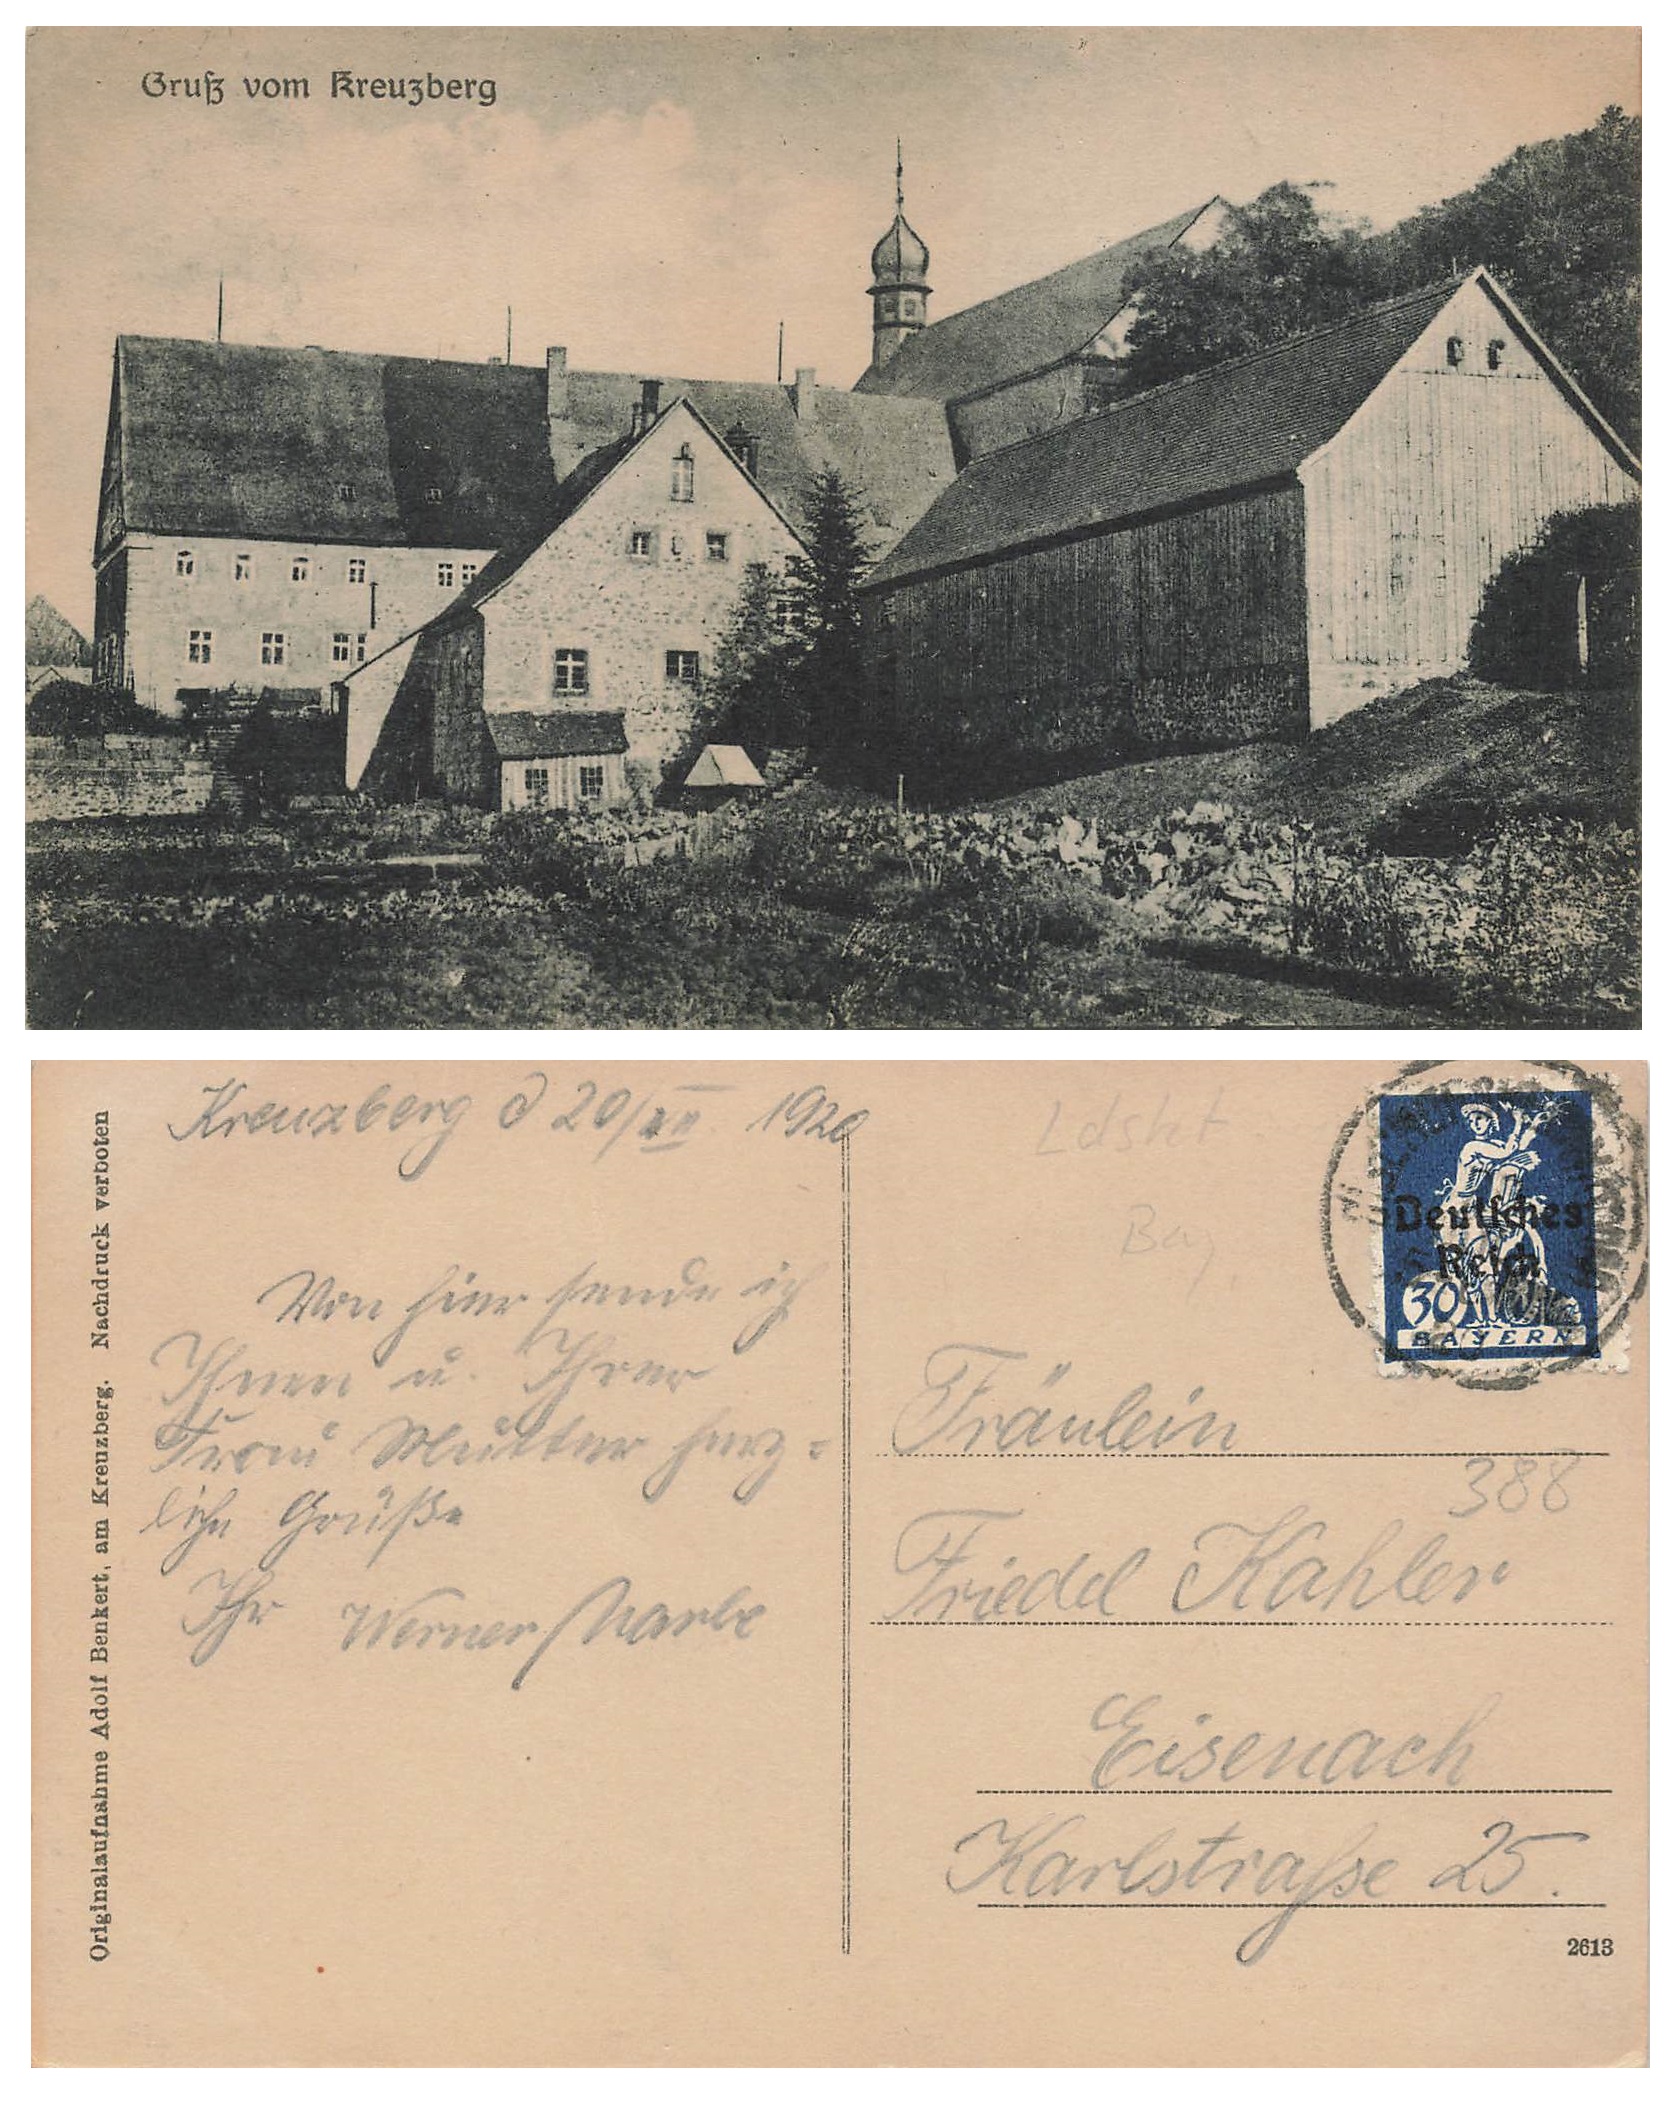 Gruß vom Kreuzberg
Originalaufnahme Adolf Benkert, am Kreuzberg. Nachdruck verboten
Kreuzberg d 20/VII. 1920
Von hier sende ich
Ihnen u. Ihrer
Frau Mutter herz=
liche Grüße
Ihr Werner
Ldsht
Bay.
Deutsches
Reich
30
BAYERN
Fräulein
388
Friedel Kahler
Eisenach
Karlstraße 25.
2613